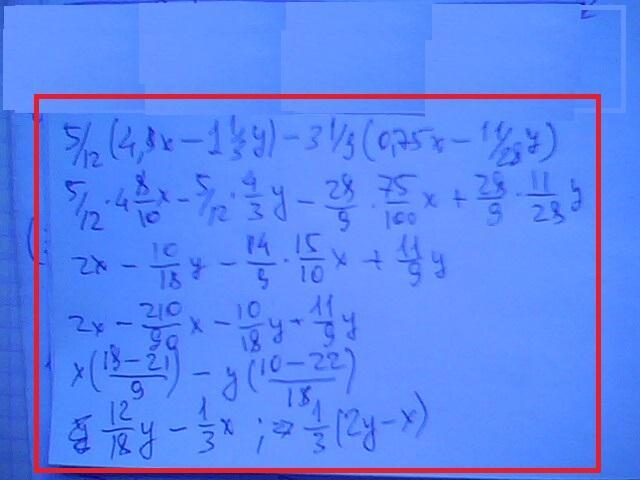 5/12 (4,8x − 1 1/3 y) − 3 1/9 (0,75x − 11/28 y)
5/12 · 4 8/10 x − 5/12 · 4/3 y − 28/9 · 75/100 x + 28/9 · 11/28 y
2x − 10/18 y − 14/9 · 15/10 x + 11/9 y
2x − 210/90 x − 10/18 y + 11/9 y
x(18−21/9) − y(10−22/18)
12/18 y − 1/3 x ; ⇒ 1/3 (2y − x)